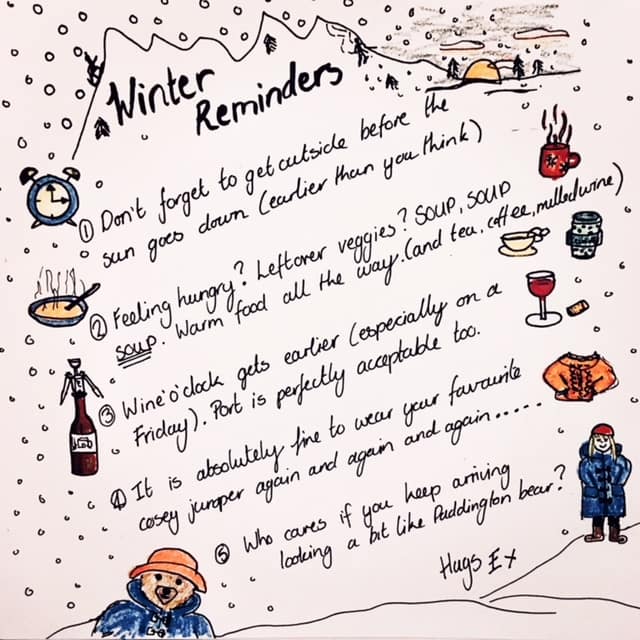 Winter
Reminders
① Don't forget to get outside before the
sun goes down (earlier than you think)
② Feeling hungry? Leftover veggies? SOUP, SOUP
SOUP. Warm food all the way. (and tea, coffee, mulled wine)
③ Wine o'clock gets earlier (especially on a
Friday). Port is perfectly acceptable too.
④ It is absolutely fine to wear your favourite
cosey jumper again and again and again.....
⑤ Who cares if you keep arriving
looking a bit like Paddington bear?
Hugs Ex